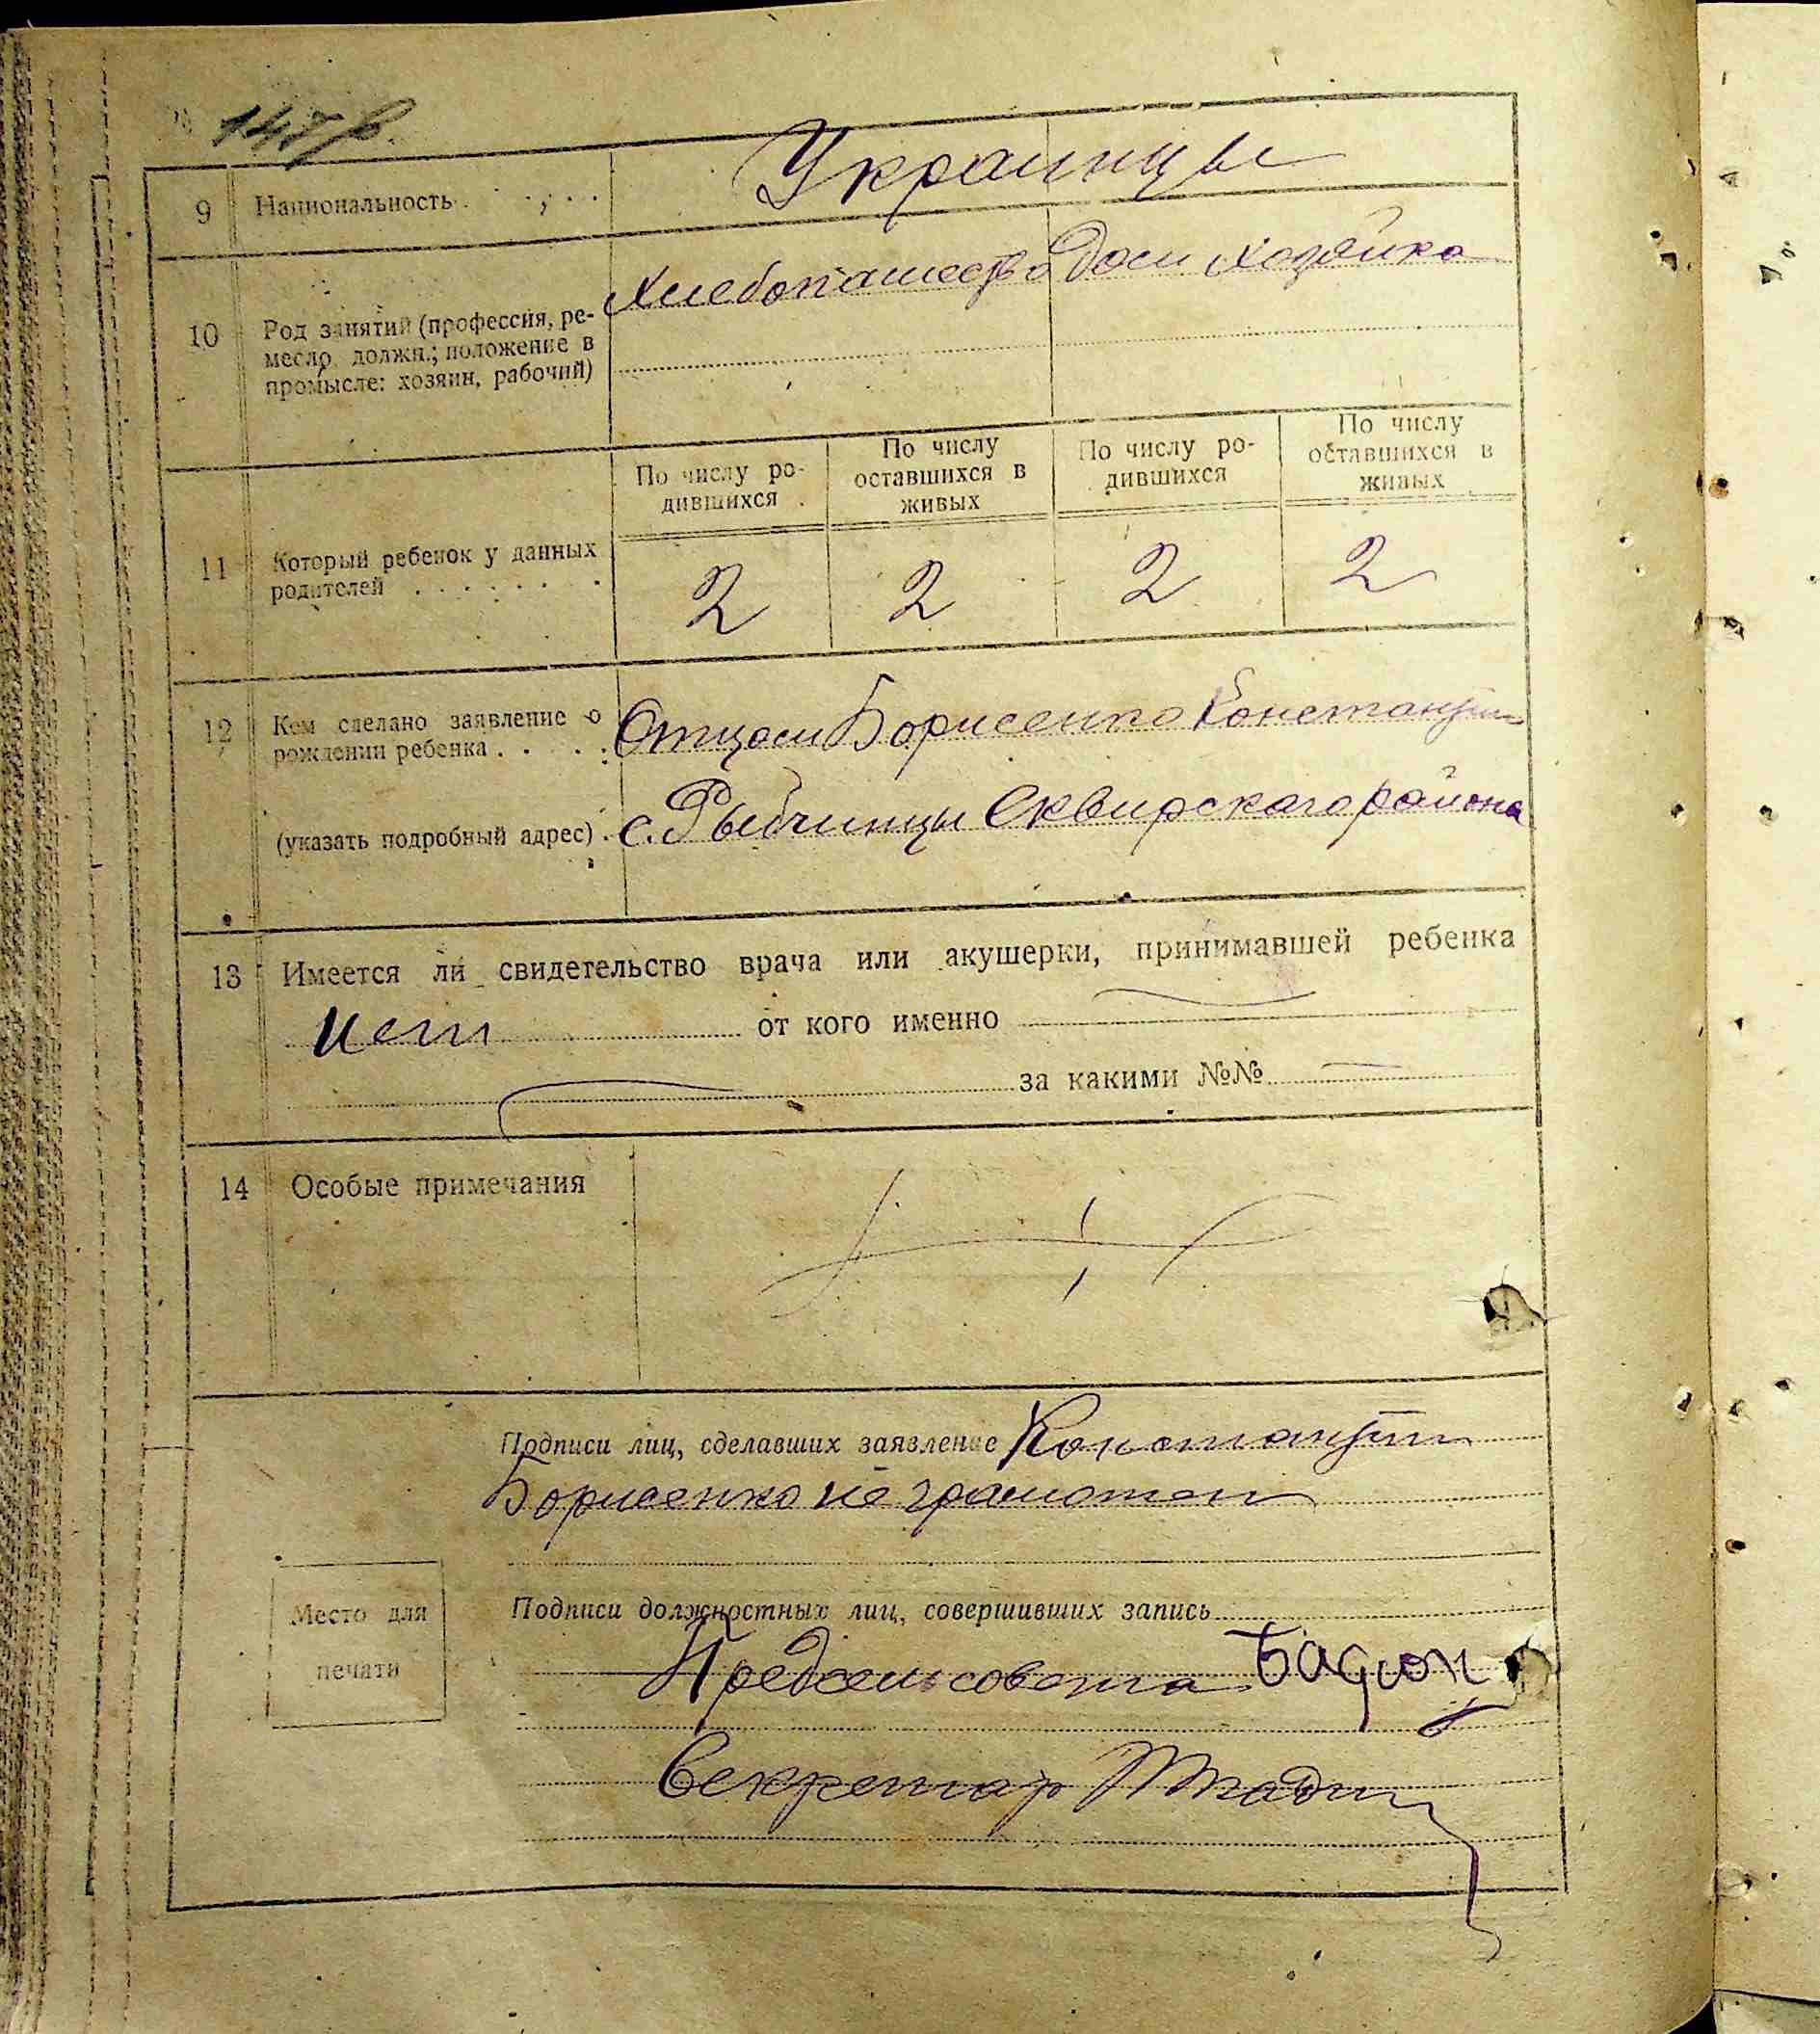 147 в.
9 Национальность Украинцы
10 Род занятий (профессия, ре-
месло, должн.; положение в
промысле: хозяин, рабочий)
Хлебопашество Дом хозяйка
По числу ро-
дившихся
По числу
оставшихся в
живых
По числу ро-
дившихся
По числу
оставшихся в
живых
11 Который ребенок у данных
родителей
2 2 2 2
12 Кем сделано заявление о
рождении ребенка
Отцом Борисенко Константин
(указать подробный адрес) с. Рыбчинцы Сквирскаго района
13 Имеется ли свидетельство врача или акушерки, принимавшей ребенка
нет от кого именно
за какими №№
14 Особые примечания
Подписи лиц, сделавших заявление Константин
Борисенко не грамотен
Место для
печати
Подписи должностных лиц, совершивших запись
Предсельсовета
Секретар